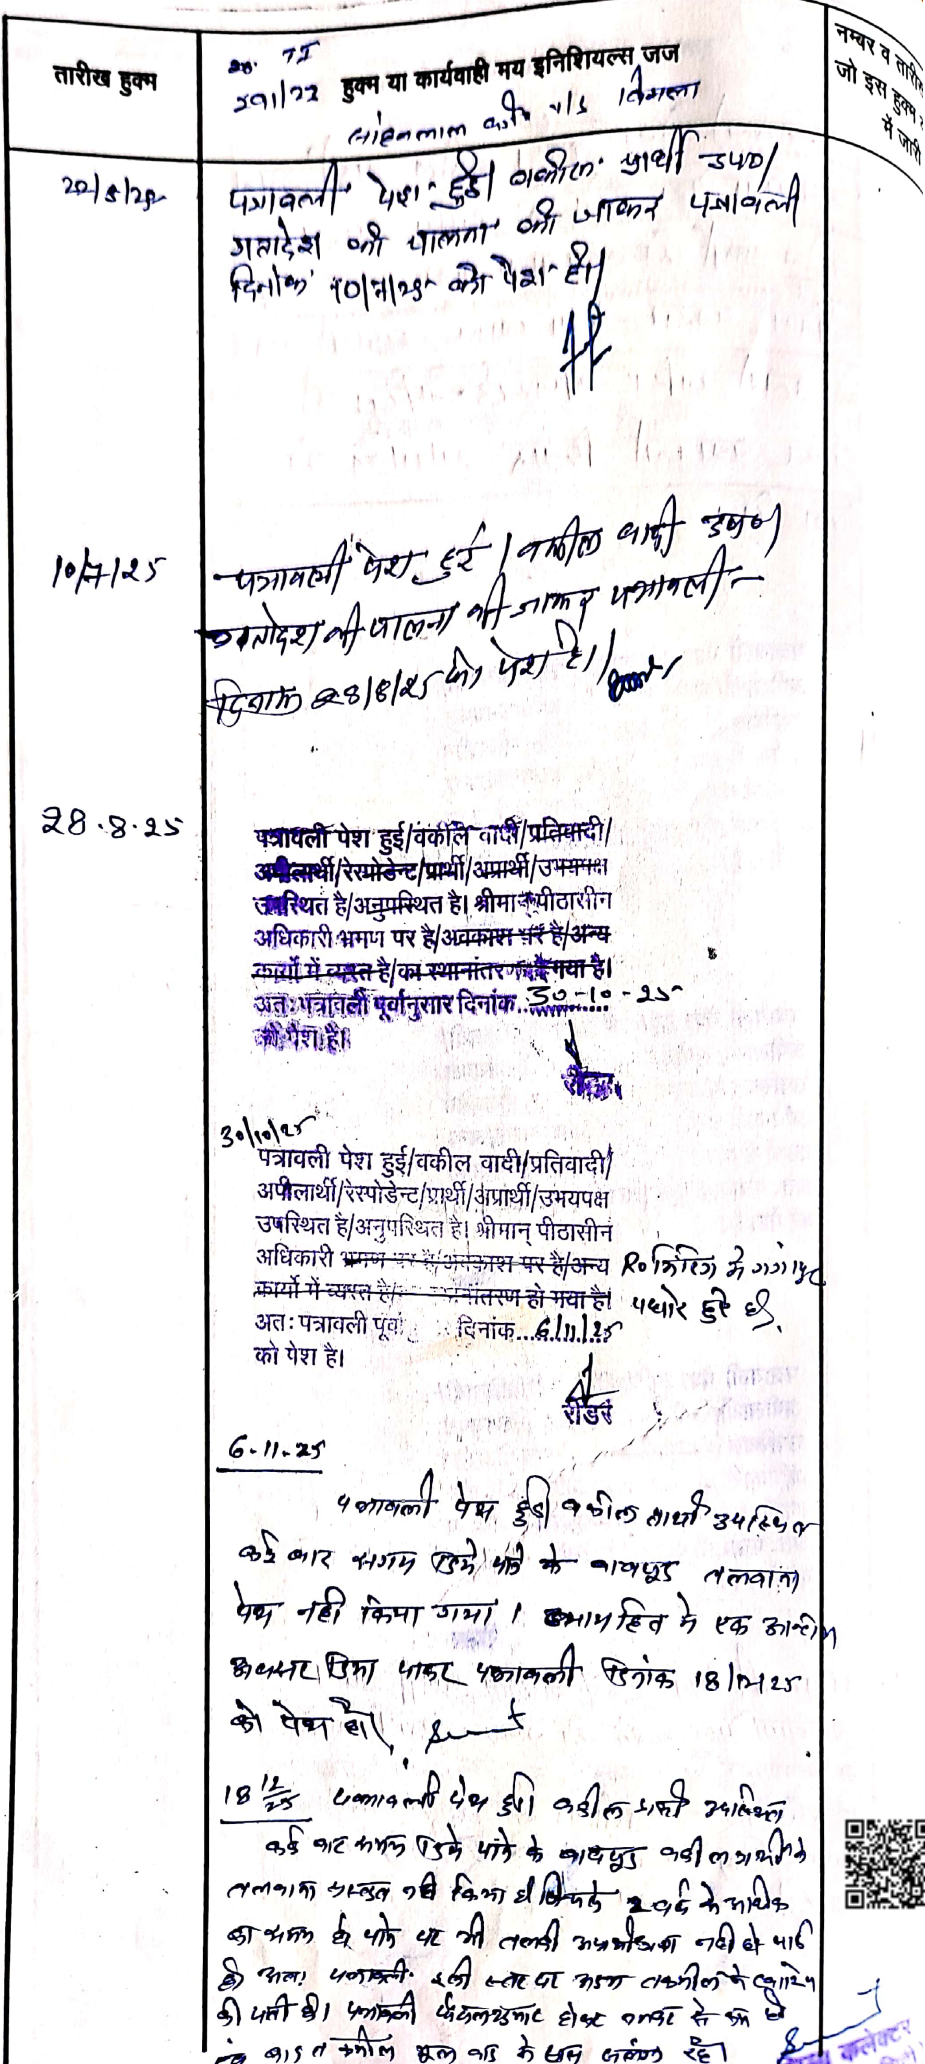 तारीख हुक्म
हुक्म या कार्यवाही मय इनिशियल्स जज
नम्बर व तारीख
जो इस हुक्म
में जारी
पत्रावली पेश हुई। वकील प्रार्थी उप०।
गतादेश की पालना की जाकर पत्रावली
दिनांक 10/7/25 को पेश हो।
10/7/25
पत्रावली पेश हुई। वकील प्रार्थी उप०।
गतादेश की पालना की जाकर पत्रावली
दिनांक 28/8/25 को पेश हो।
28.8.25
पत्रावली पेश हुई/वकील वादी/प्रतिवादी/
अपीलार्थी/रेस्पोडेन्ट/प्रार्थी/अप्रार्थी/उभयपक्ष
उपस्थित है/अनुपस्थित है। श्रीमान् पीठासीन
अधिकारी भ्रमण पर है/अवकाश पर है/अन्य
कार्यो में व्यस्त है/का स्थानांतरण हो गया है।
अतः पत्रावली पूर्वानुसार दिनांक..30-10-25
को पेश है।
रीडर
30/10/25
पत्रावली पेश हुई/वकील वादी/प्रतिवादी/
अपीलार्थी/रेस्पोडेन्ट/प्रार्थी/अप्रार्थी/उभयपक्ष
उपस्थित है/अनुपस्थित है। श्रीमान् पीठासीन
अधिकारी भ्रमण पर है/अवकाश पर है/अन्य
कार्यो में व्यस्त है/ स्थानांतरण हो गया है।
पधारे हुए है।
अतः पत्रावली पूर्वा दिनांक...6/11/25
को पेश है।
रीडर
6.11.25
पत्रावली पेश हुई। वकील प्रार्थी उपस्थित
कई बार समय दिये जाने के बावजूद तलवाना
पेश नहीं किया गया। न्यायहित मे एक अन्तिम
अवसर दिया जाकर पत्रावली दिनांक 18/12/25
को पेश हो।
18 12/25 पत्रावली पेश हुई। वकील प्रार्थी उपस्थित
कई बार समय दिये जाने के बावजूद वकील प्रार्थी ने
तलवाना प्रस्तुत नही किया है 2 वर्ष से अधिक
का समय हो जाने पर भी तलबी नही हो पाई
है अतः पत्रावली इसी स्तर पर अदम तकमील मे खारिज
की जाती है। पत्रावली फैसलशुमार होकर नम्बर से कम हो
बाद तकमील मूल वाद के साथ संलग्न रहे।
कलेक्टर